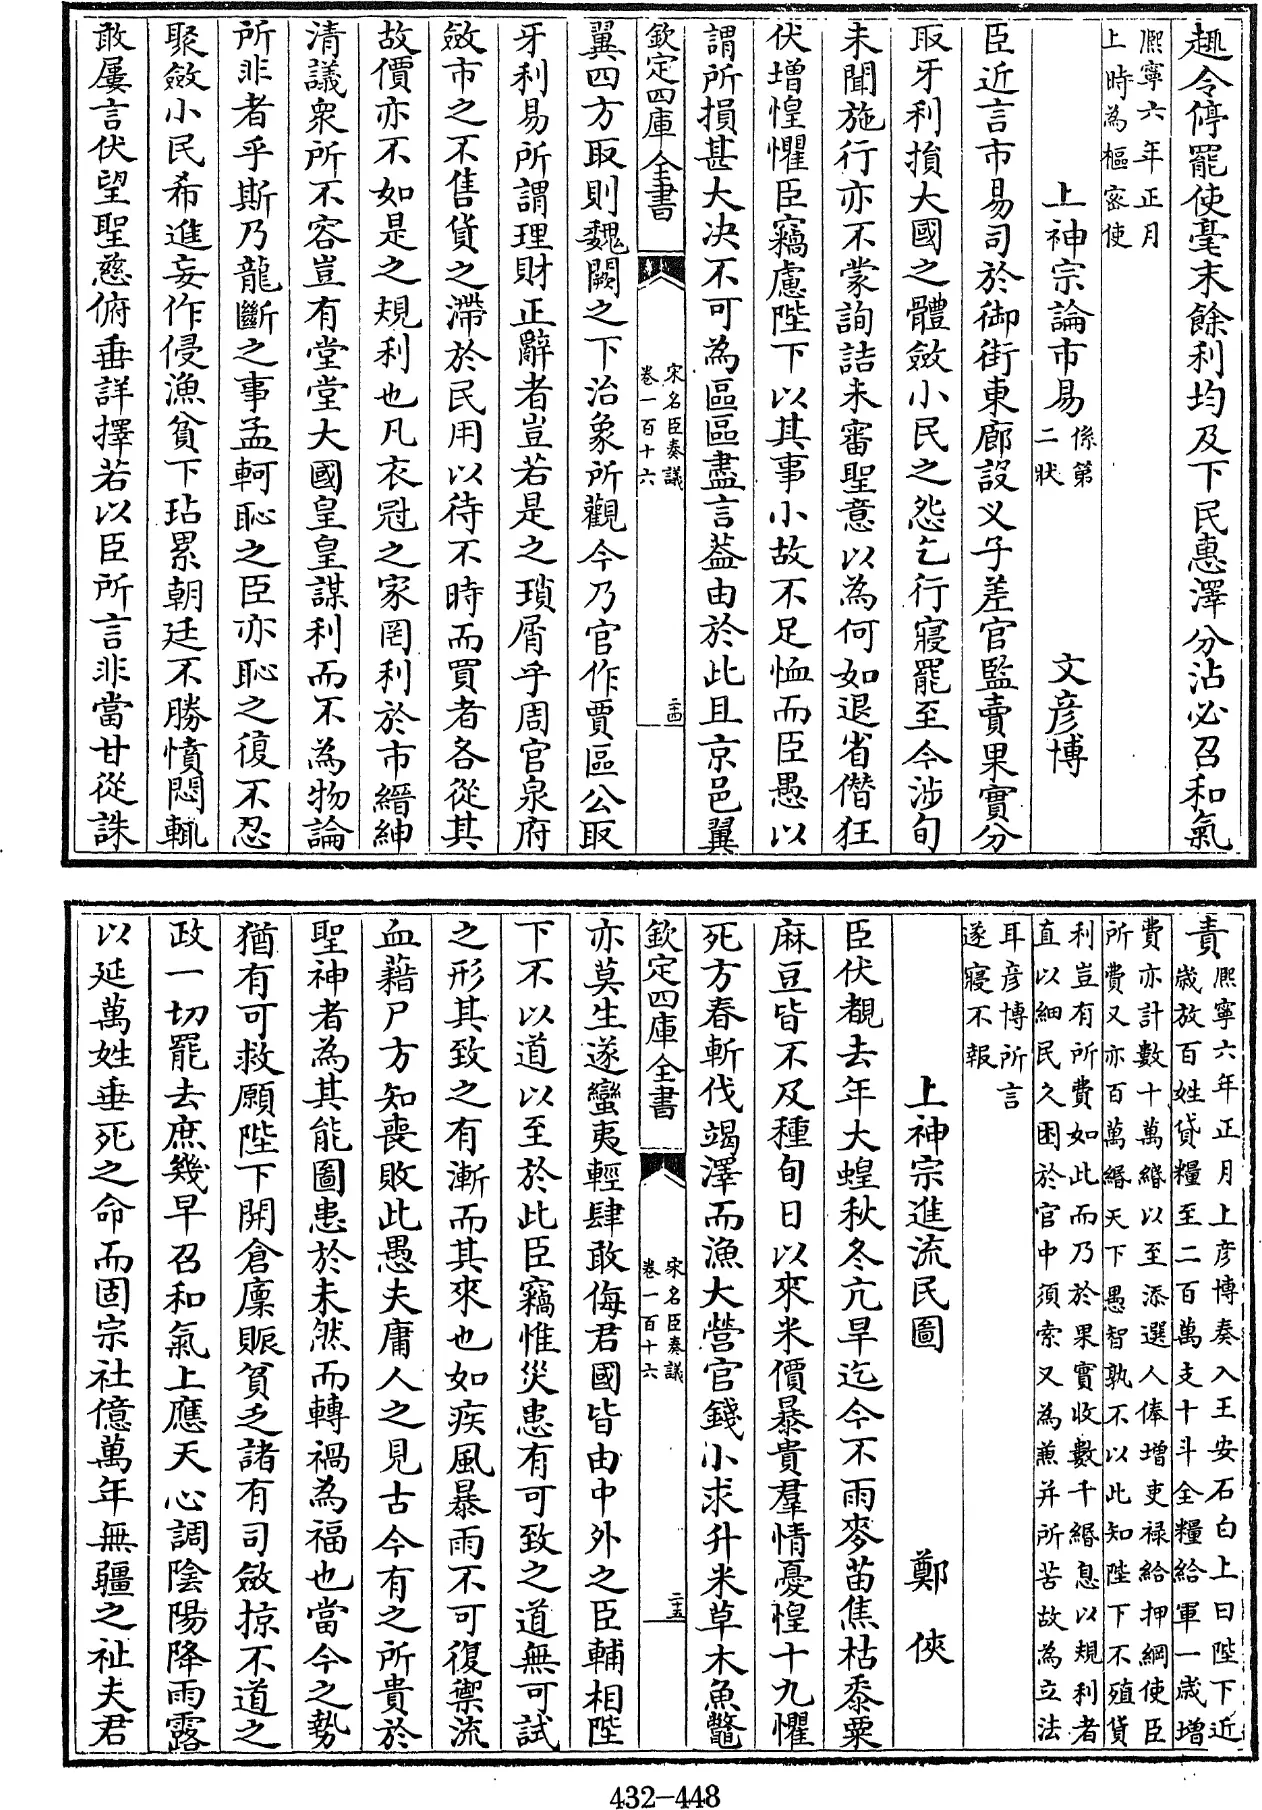 趣令停罷使毫末餘利均及下民惠澤分沾必召和氣
熙寧六年正月
上時為樞密使
上神宗論市易係第二狀 文彦博
臣近言市易司於御街東廊設义子差官監賣果實分
取牙利損大國之體斂小民之怨乞行寢罷至今涉旬
未聞施行亦不蒙詢詰未審聖意以為何如退省僭狂
伏增惶懼臣竊慮陛下以其事小故不足恤而臣愚以
謂所損甚大决不可為區區盡言葢由於此且京邑翼
欽定四庫全書 宋名臣奏議 卷一百十六 二十四
翼四方取則魏闕之下治象所觀今乃官作賈區公取
牙利易所謂理財正辭者豈若是之瑣屑乎周官泉府
斂市之不售貨之滯於民用以待不時而買者各從其
故價亦不如是之規利也凡衣冠之家罔利於市縉紳
清議衆所不容豈有堂堂大國皇皇謀利而不為物論
所非者乎斯乃龍斷之事孟軻恥之臣亦恥之復不忍
聚斂小民希進妄作侵漁貧下玷累朝廷不勝憤悶輒
敢屢言伏望聖慈俯垂詳擇若以臣所言非當甘從誅
責熙寧六年正月上彦博奏入王安石白上曰陛下近
歲放百姓貸糧至二百萬支十斗全糧給軍一歲增
費亦計數十萬緡以至添選人俸增吏禄給押綱使臣
所費又亦百萬緡天下愚智孰不以此知陛下不殖貨
利豈有所費如此而乃於果實收數千緡息以規利者
直以細民久困於官中須索又為兼并所苦故為立法
耳彦博所言
遂寢不報
上神宗進流民圖 鄭俠
臣伏覩去年大蝗秋冬亢旱迄今不雨麥苗焦枯黍粟
麻豆皆不及種旬日以來米價暴貴羣情憂惶十九懼
死方春斬伐竭澤而漁大營官錢小求升米草木魚鼈
欽定四庫全書 宋名臣奏議 卷一百十六 二十五
亦莫生遂蠻夷輕肆敢侮君國皆由中外之臣輔相陛
下不以道以至於此臣竊惟災患有可致之道無可試
之形其致之有漸而其來也如疾風暴雨不可復禦流
血藉尸方知喪敗此愚夫庸人之見古今有之所貴於
聖神者為其能圖患於未然而轉禍為福也當今之勢
猶有可救願陛下開倉廪賑貧乏諸有司斂掠不道之
政一切罷去庶幾早召和氣上應天心調隂陽降雨露
以延萬姓垂死之命而固宗社億萬年無疆之祉夫君
432-448